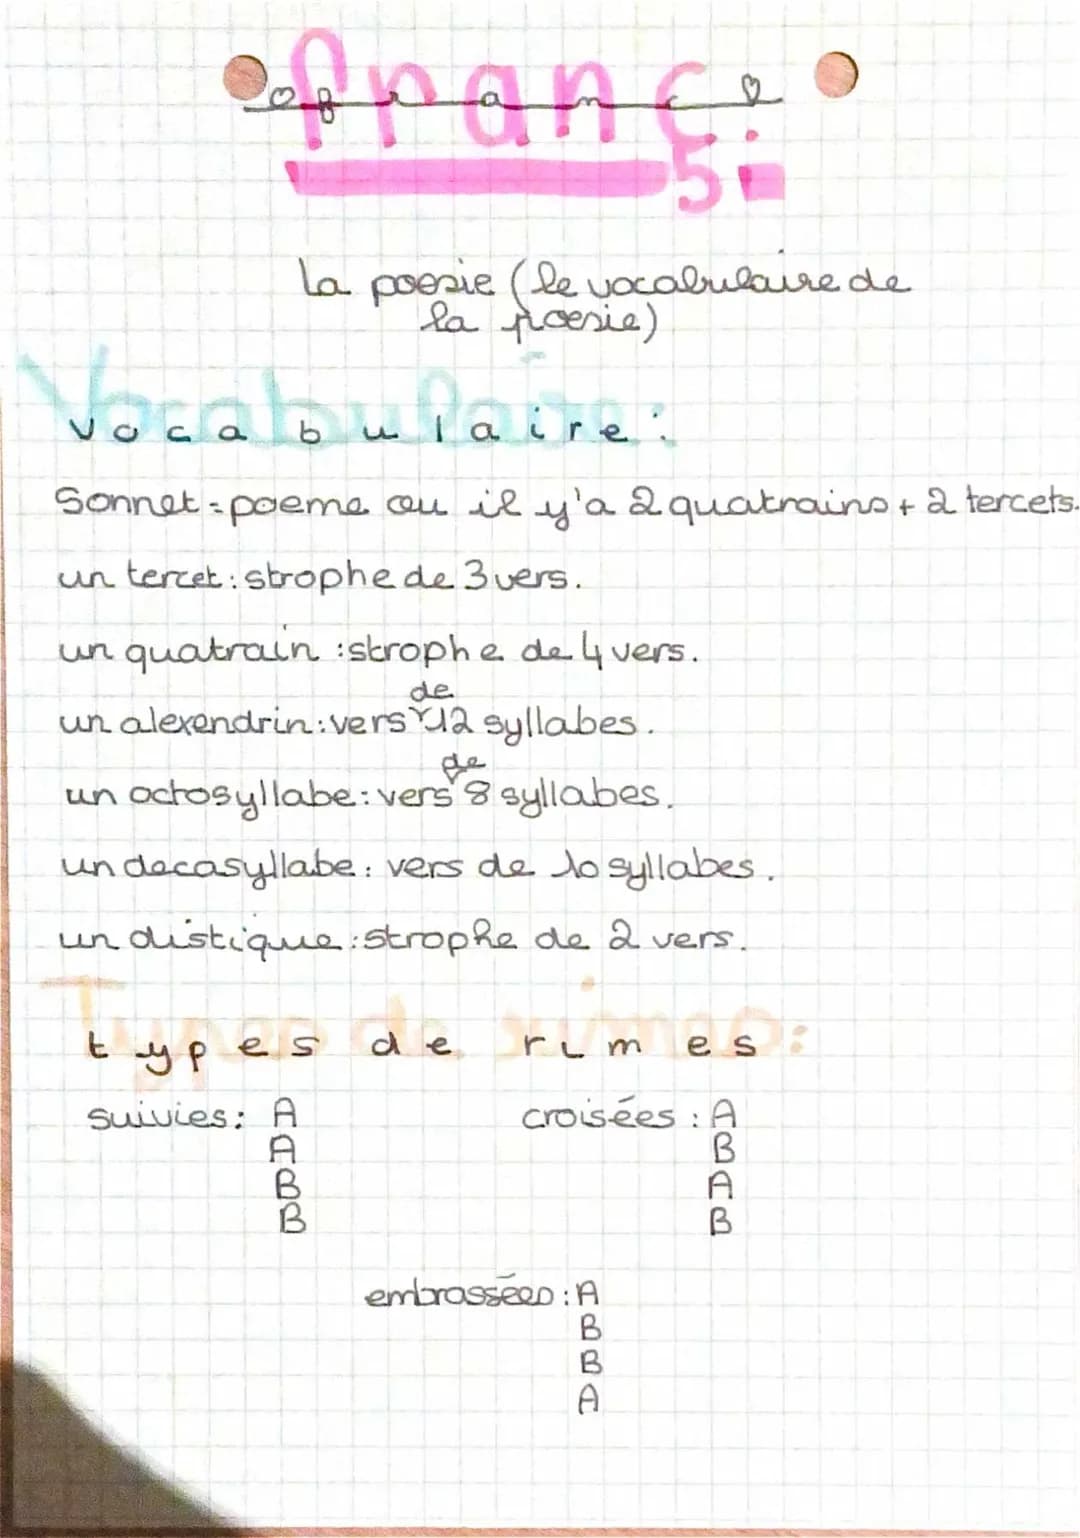 franç.
franç
La poesie (le vocabulaire de
la poesie)
Vocabulaire:
vocabulaire:
Sonnet = poeme ou il y'a 2 quatrains + 2 tercets.
un tercet : strophe de 3 vers.
un quatrain : strophe de 4 vers.
de
un alexendrin : vers 12 syllabes.
de
un octosyllabe : vers 8 syllabes.
un decasyllabe : vers de 10 syllabes.
un distique : strophe de 2 vers.
Types de rimes:
types de rimes:
suivies: A croisées : A
A B
B A
B B
embrassées : A
B
B
A